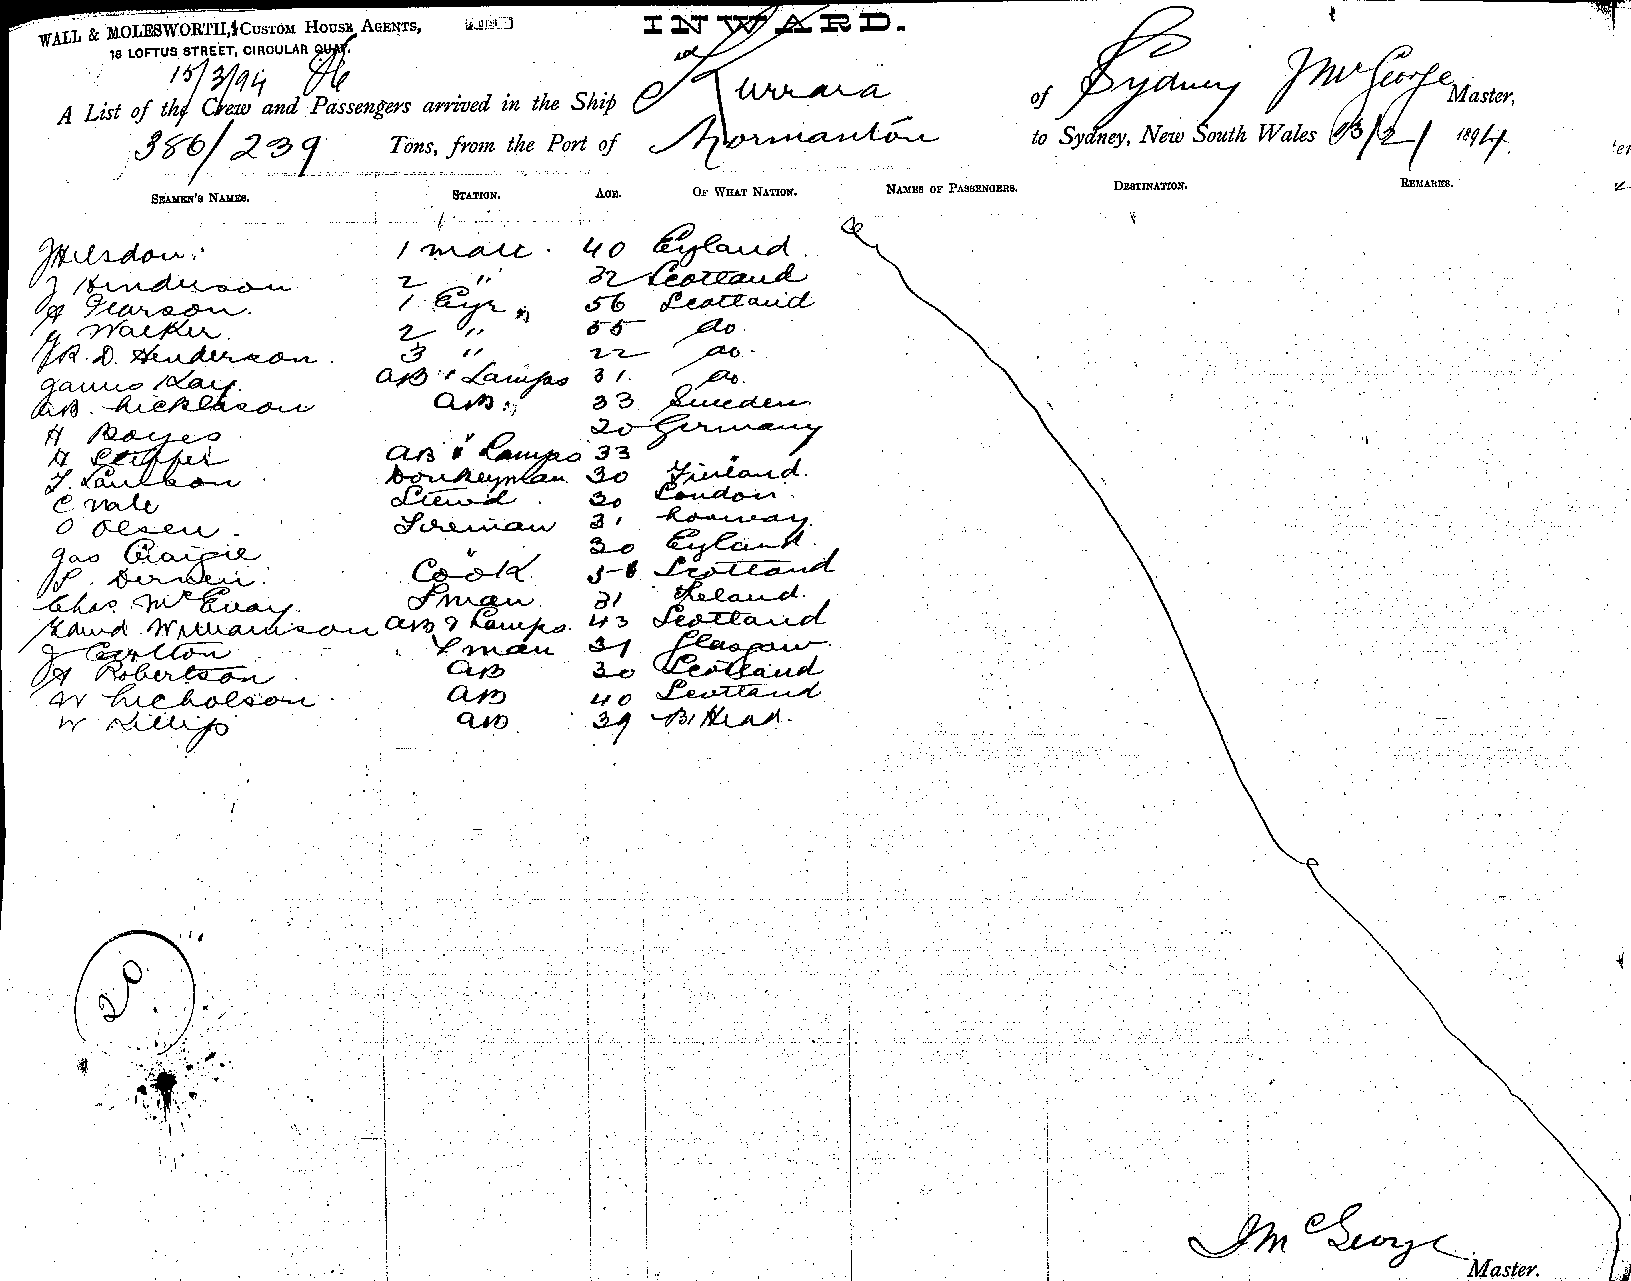 WALL & MOLESWORTH, Custom House Agents,
16 LOFTUS STREET, CIRCULAR QUAY.
INWARD.
15/3/94
A List of the Crew and Passengers arrived in the Ship Kurrara of Sydney J McGeorge Master,
386/239 Tons, from the Port of Normanton to Sydney, New South Wales 13/2/ 1894.
Seamen's Names. Station. Age. Of what Nation. Names of Passengers. Destination. Remarks.
J Hilsdon. 1 mate. 40 England
J Henderson 2 " 32 Scotland
A Pearson. 1 Eyr 56 Scotland
J Walker 2 " 55 do.
J R. D. Henderson. 3 " 22 do.
James Kay. AB & Lamps 31. do.
Nicklason AB 33 Sweden
H Boyes " 20 Germany
H AB & Lamps 33
Donkeyman 30 Finland.
C Vale Stewd 30 London.
O Olsen. Fireman 31 Norway
Jas Craigie " 30 England.
Cook Scotland
Chas McEvay. Fman 31 Ireland.
Edwd Williamson AB & Lamps. 43 Scotland
J Fman 31 Glasgow
A Robertson AB 30 Scotland
W Nicholson AB 40 Scotland
W AB 39 B. Head.
20
J McGeorge
Master.